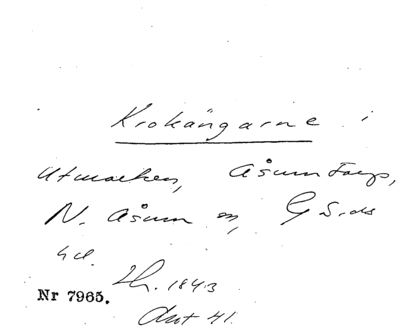 Krokängarne i
Utmarken, Åsumtorp,
N. Åsum sn, G S. ds
hd.
Nr 7965. Lh. 1843
Akt 41.